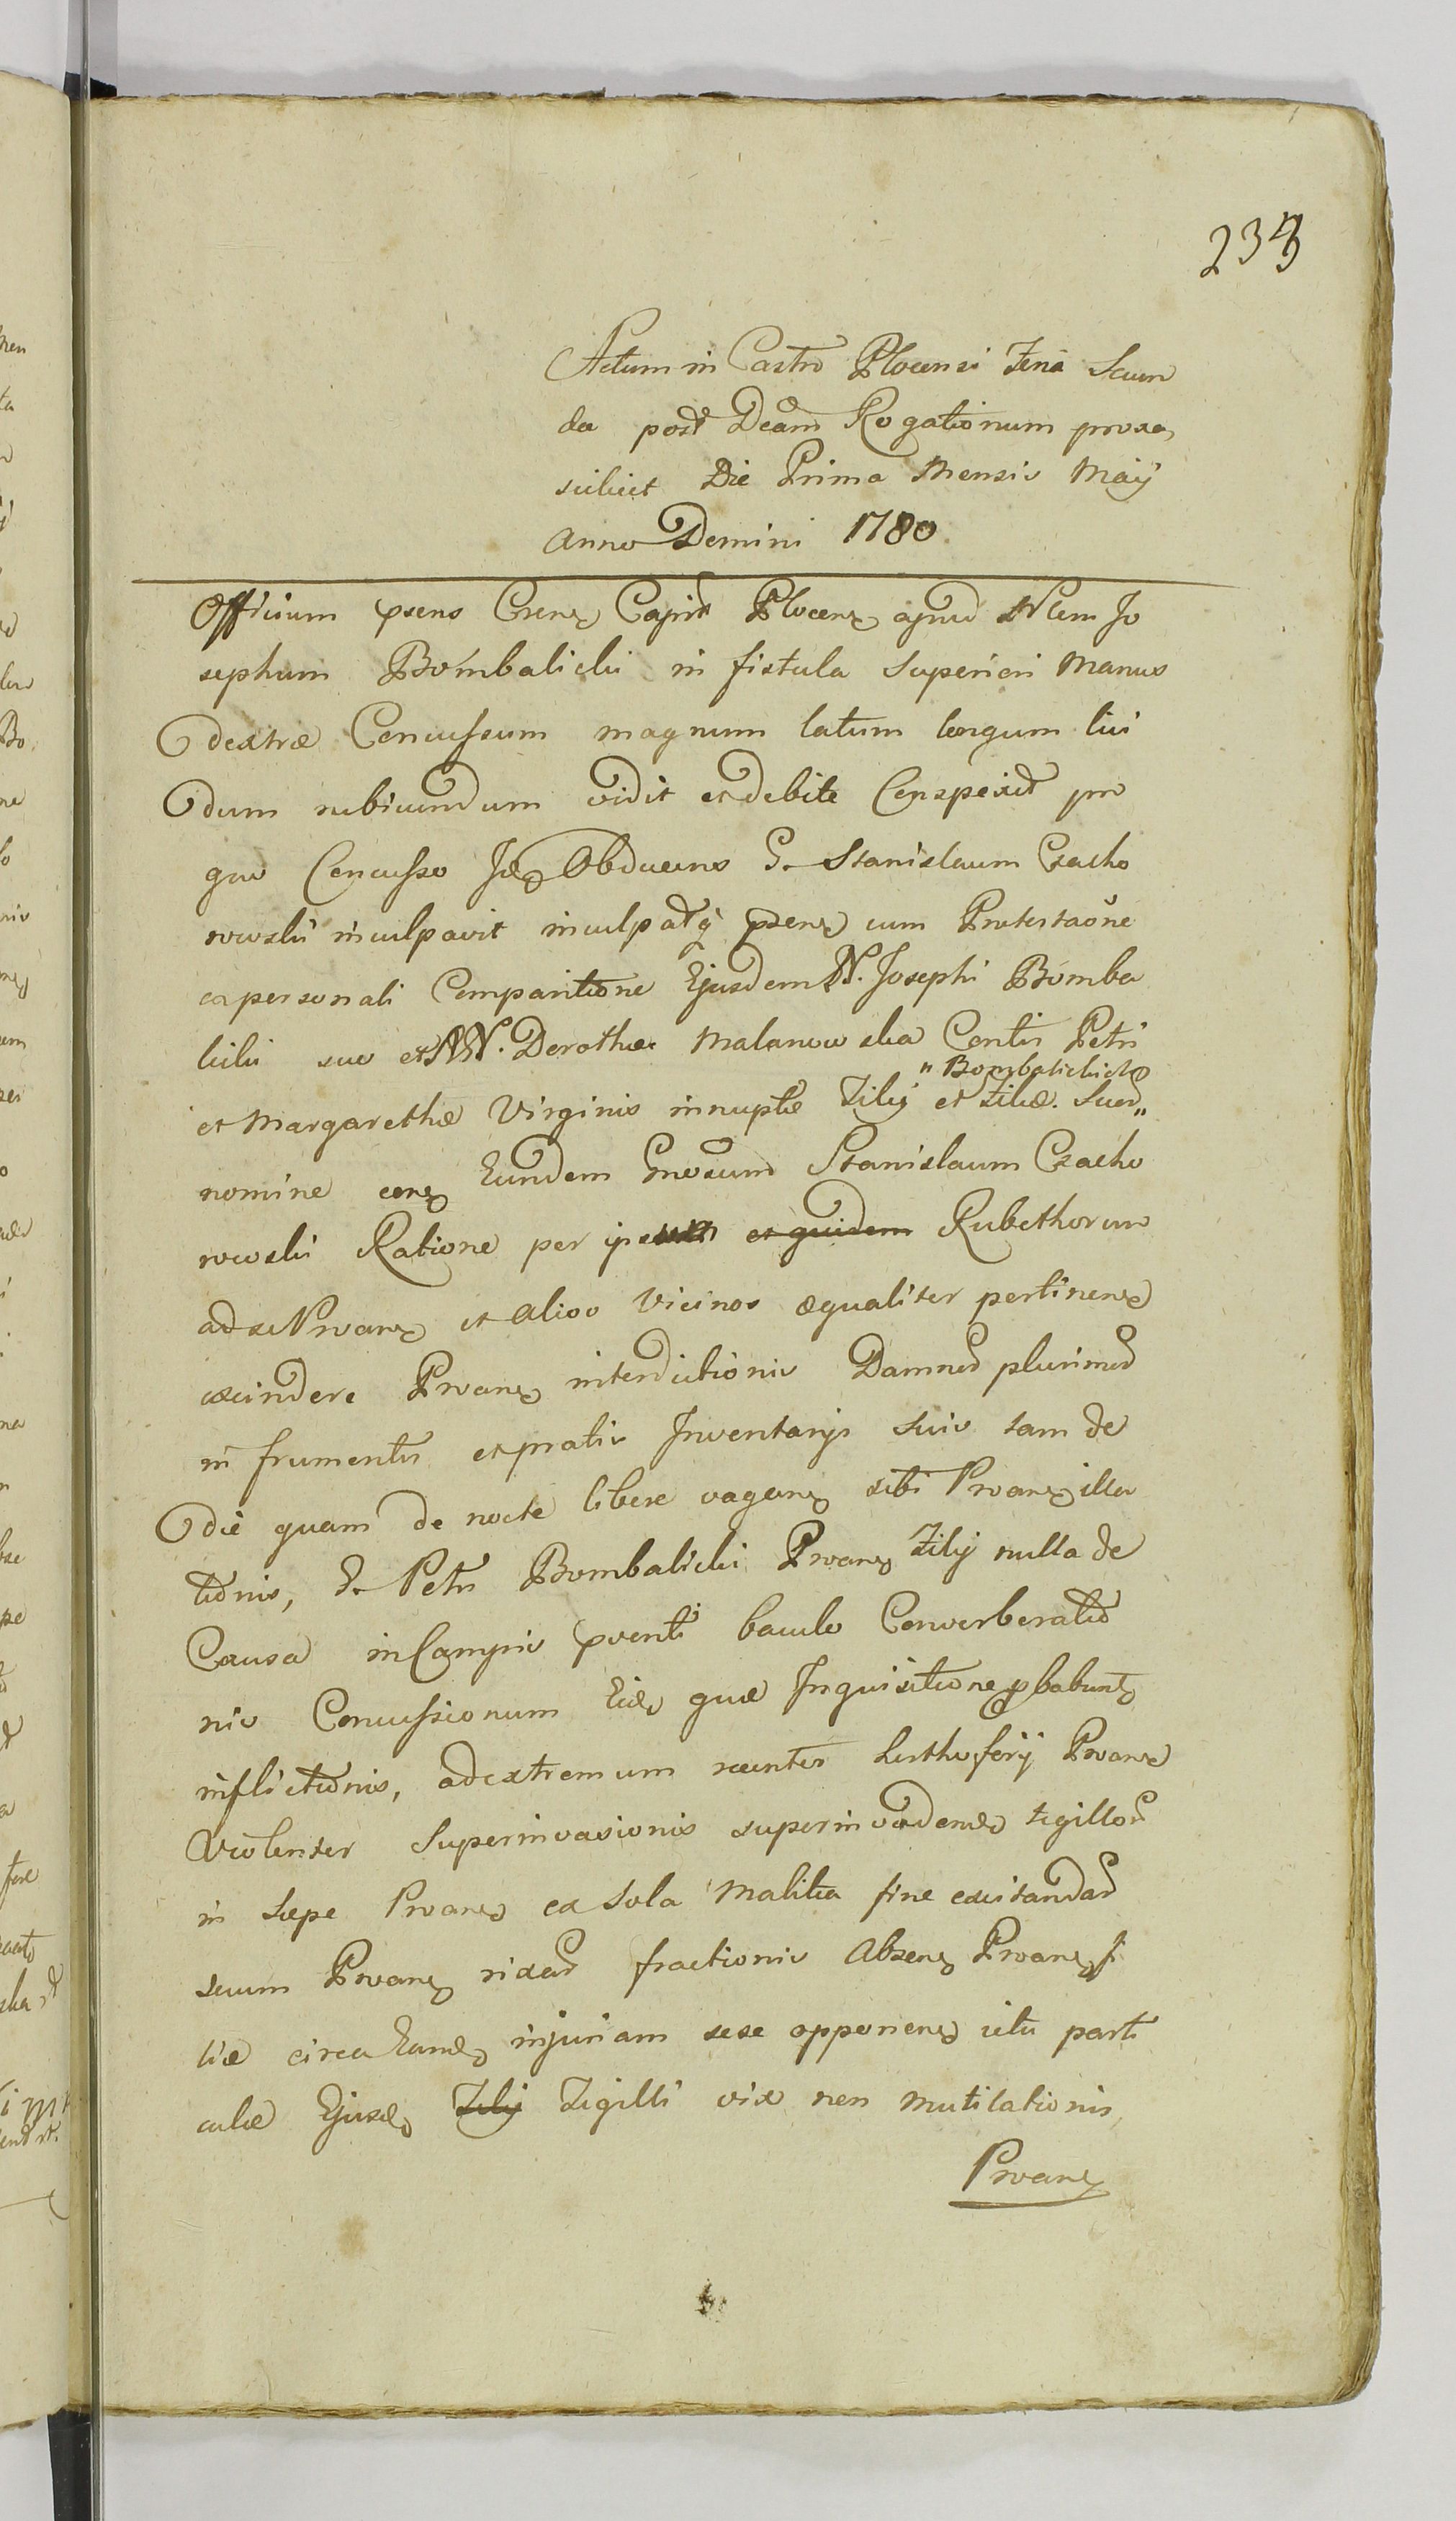 233
Actum in Castro Plocensi Feria Secun
da post Dcam Rogationum proxa,
scilicet Die Prima Mensis Maÿ
Anno Domini 1780
Officium psens Csrens Capit Plocens apud Nlem Jo
sephum Bombalicki in fistula superiori Manus
dextræ Concussum magnum latum longum livi
dum rubicundum vidit et debite Conspexit pro
quo Concusso Id Obducens G. Stanislaum Czacho
rowski inculpavit inculpatq psens cum Protestaone
ex personali Comparitione Ejusdem N. Josephi Bomba
licki suo et NN. Dorothea Malanowska Contis Petri
" Bombalickich
et Margarethæ Virginis innuptæ Filÿ et Filiæ. Suor"
nomine cons Eundem Gnosum Stanislaum Czacho
rowski Ratione per et quidem Rubethorum
ad se Proans et alios Vicinos æqualiter pertinens
excindere Proans interdictionis Damnor plurimor
in frumentis et pratis Inventarÿs suis tam de
die quam de nocte libere vagans sibi Proans illa
tionis, G. Petri Bombalicki Proans Filÿ nulla de
Causa in Campis pventi baculo Converberatio
nis Concussionum Eid quæ Inquisitione pbabunt
inflictionis, ad extremum recenter Proans
Violenter Superinvasionis superinvadend tigillor
in sæpe Proans ex sola Malitia sine excitandar
secum Proans rixar fractionis Absens Proans fi
liæ circa Eand injuriam sese opponens ictu parti
culæ Ejusd Filÿ Tigilli vix non Mutilationis,
Proans